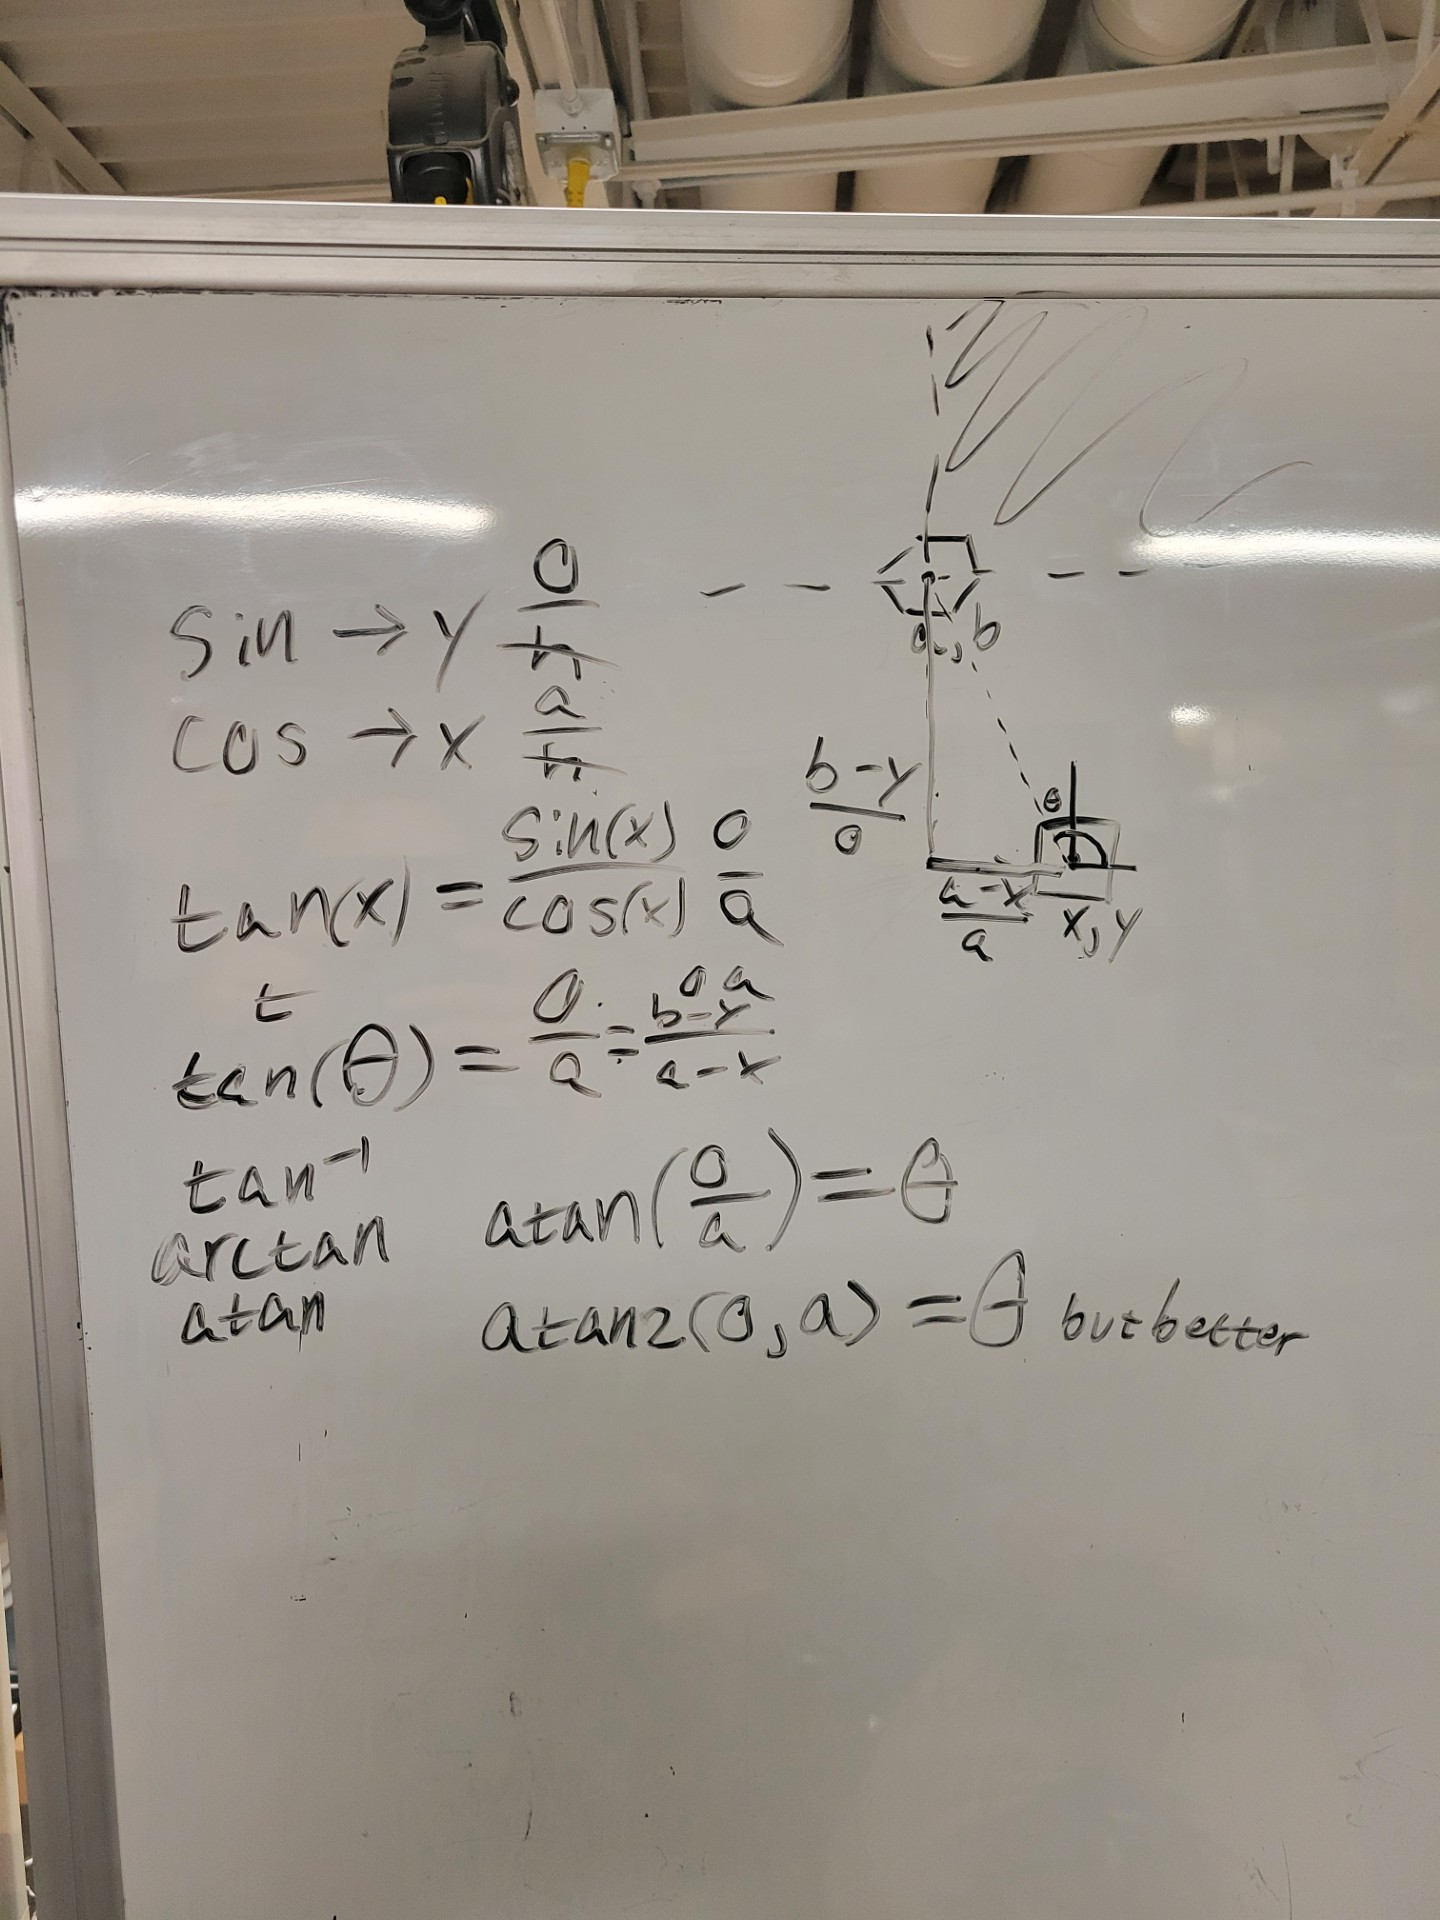 sin → y o/h
cos → x a/h
tan(x) = sin(x)/cos(x) o/a
t
o a
tan(θ) = o/a = b-y/a-x
tan⁻¹
arctan
atan
atan(o/a) = θ
atan2(o,a) = θ but better
a, b
b-y/o
θ
a-x/a
x, y